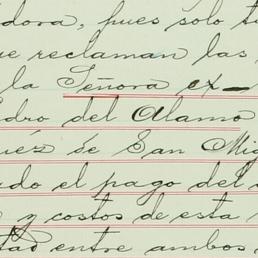 dora, pues solo t
ue reclaman las
la Señora ex-
dro del Alamo
uéz de San Mig
do el pago del
y costos de esta
tad entre ambos